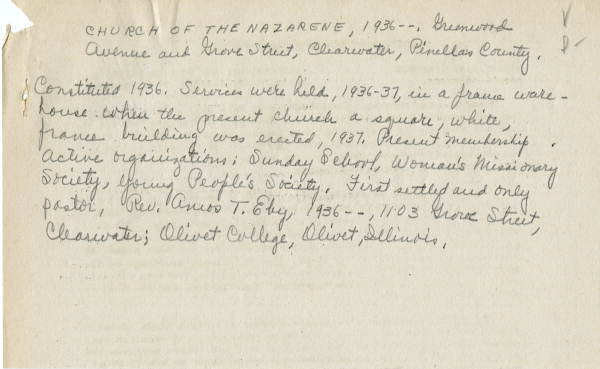 CHURCH OF THE NAZARENE, 1936--. Greenwood
Avenue and Grove Street, Clearwater, Pinellas County.
Constituted 1936. Services were held, 1936-37, in a frame ware-
house when the present church a square, white,
frame building was erected, 1937. Present membership .
Active organizations: Sunday School, Woman's Missionary
Society, Young People's Society. First settled and only
pastor, Rev. Amos T. Eby, 1936--, 1103 Grove Street,
Clearwater; Olivet College, Olivet, Illinois.